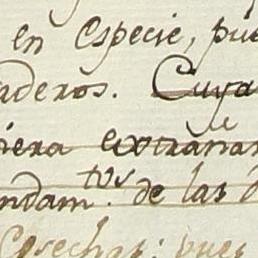 en especie, pue
aderos. Cuya
iera extrañar
ndam.tos de las d
Cosechas: pues